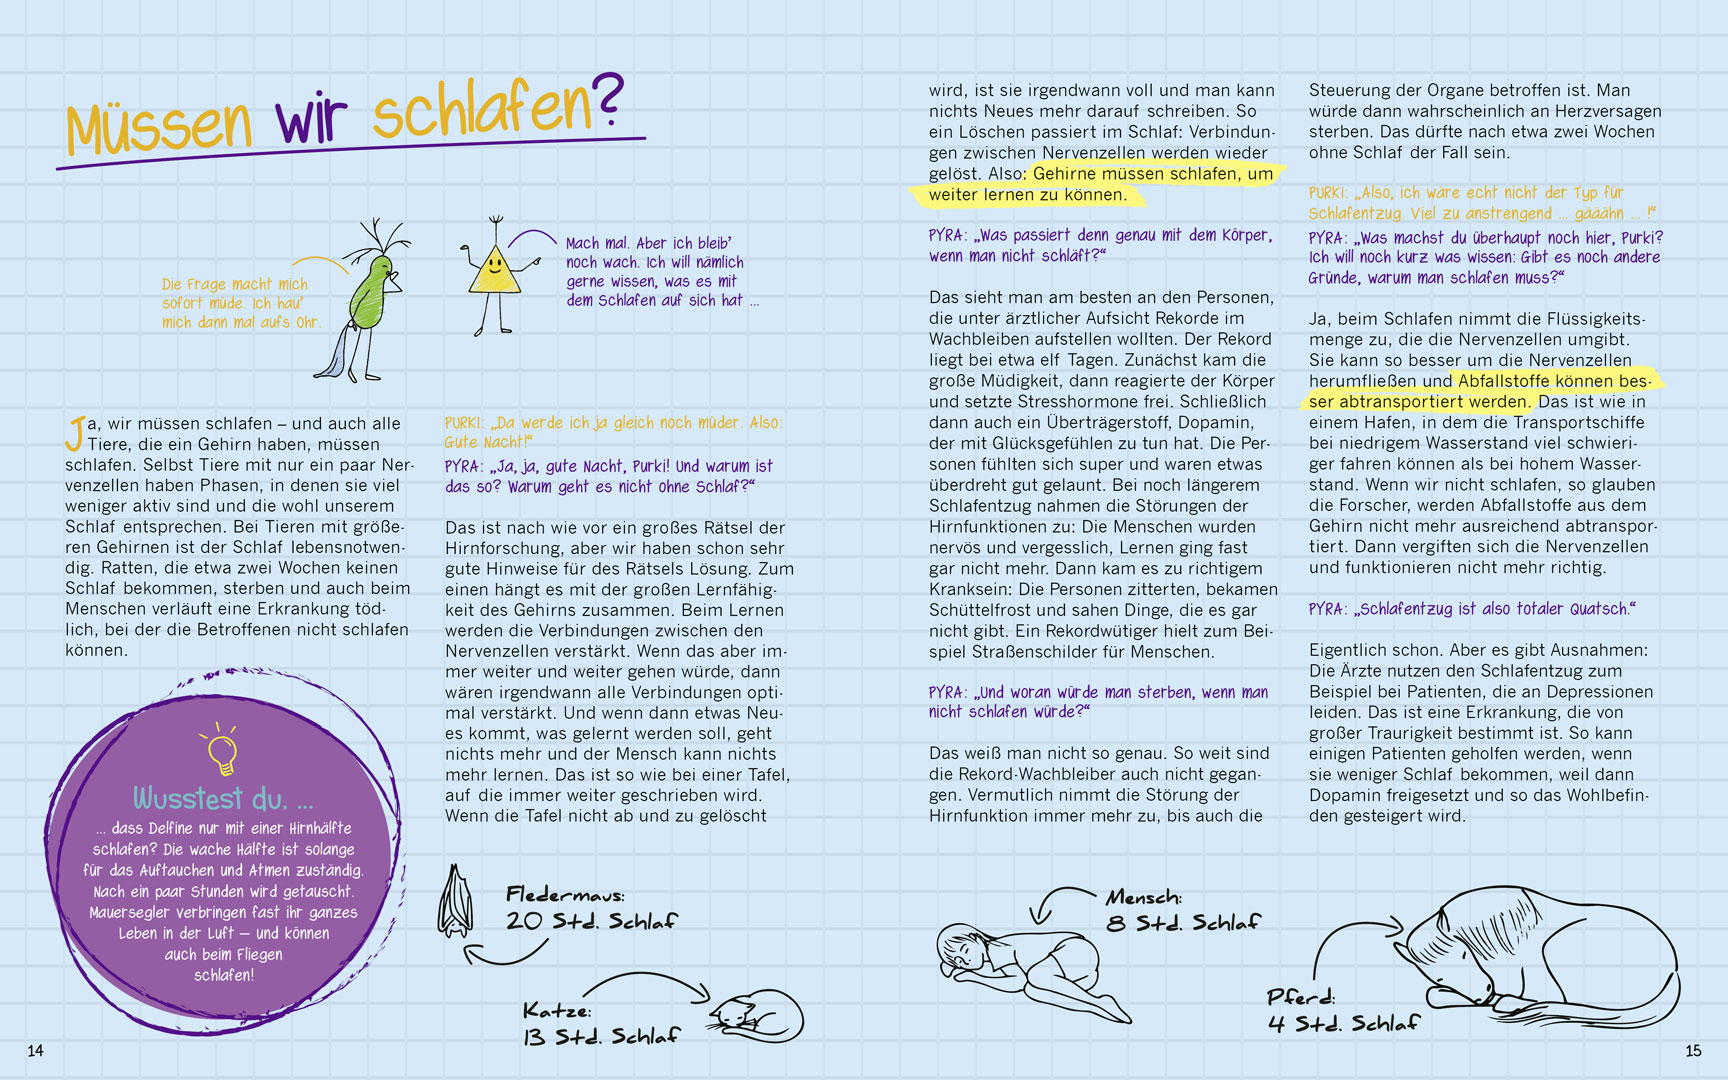 Müssen wir schlafen?
Die Frage macht mich
sofort müde. Ich hau'
mich dann mal aufs Ohr.
Mach mal. Aber ich bleib'
noch wach. Ich will nämlich
gerne wissen, was es mit
dem Schlafen auf sich hat ...
Ja, wir müssen schlafen – und auch alle
Tiere, die ein Gehirn haben, müssen
schlafen. Selbst Tiere mit nur ein paar Ner-
venzellen haben Phasen, in denen sie viel
weniger aktiv sind und die wohl unserem
Schlaf entsprechen. Bei Tieren mit größe-
ren Gehirnen ist der Schlaf lebensnotwen-
dig. Ratten, die etwa zwei Wochen keinen
Schlaf bekommen, sterben und auch beim
Menschen verläuft eine Erkrankung töd-
lich, bei der die Betroffenen nicht schlafen
können.
Wusstest du, ...
... dass Delfine nur mit einer Hirnhälfte
schlafen? Die wache Hälfte ist solange
für das Auftauchen und Atmen zuständig.
Nach ein paar Stunden wird getauscht.
Mauersegler verbringen fast ihr ganzes
Leben in der Luft – und können
auch beim Fliegen
schlafen!
PURKI: „Da werde ich ja gleich noch müder. Also:
Gute Nacht!“
PYRA: „Ja, ja, gute Nacht, Purki! Und warum ist
das so? Warum geht es nicht ohne Schlaf?“
Das ist nach wie vor ein großes Rätsel der
Hirnforschung, aber wir haben schon sehr
gute Hinweise für des Rätsels Lösung. Zum
einen hängt es mit der großen Lernfähig-
keit des Gehirns zusammen. Beim Lernen
werden die Verbindungen zwischen den
Nervenzellen verstärkt. Wenn das aber im-
mer weiter und weiter gehen würde, dann
wären irgendwann alle Verbindungen opti-
mal verstärkt. Und wenn dann etwas Neu-
es kommt, was gelernt werden soll, geht
nichts mehr und der Mensch kann nichts
mehr lernen. Das ist so wie bei einer Tafel,
auf die immer weiter geschrieben wird.
Wenn die Tafel nicht ab und zu gelöscht
Fledermaus:
20 Std. Schlaf
Katze:
13 Std. Schlaf
14
wird, ist sie irgendwann voll und man kann
nichts Neues mehr darauf schreiben. So
ein Löschen passiert im Schlaf: Verbindun-
gen zwischen Nervenzellen werden wieder
gelöst. Also: Gehirne müssen schlafen, um
weiter lernen zu können.
PYRA: „Was passiert denn genau mit dem Körper,
wenn man nicht schläft?“
Das sieht man am besten an den Personen,
die unter ärztlicher Aufsicht Rekorde im
Wachbleiben aufstellen wollten. Der Rekord
liegt bei etwa elf Tagen. Zunächst kam die
große Müdigkeit, dann reagierte der Körper
und setzte Stresshormone frei. Schließlich
dann auch ein Überträgerstoff, Dopamin,
der mit Glücksgefühlen zu tun hat. Die Per-
sonen fühlten sich super und waren etwas
überdreht gut gelaunt. Bei noch längerem
Schlafentzug nahmen die Störungen der
Hirnfunktionen zu: Die Menschen wurden
nervös und vergesslich, Lernen ging fast
gar nicht mehr. Dann kam es zu richtigem
Kranksein: Die Personen zitterten, bekamen
Schüttelfrost und sahen Dinge, die es gar
nicht gibt. Ein Rekordwütiger hielt zum Bei-
spiel Straßenschilder für Menschen.
PYRA: „Und woran würde man sterben, wenn man
nicht schlafen würde?“
Das weiß man nicht so genau. So weit sind
die Rekord-Wachbleiber auch nicht gegan-
gen. Vermutlich nimmt die Störung der
Hirnfunktion immer mehr zu, bis auch die
Mensch:
8 Std. Schlaf
Steuerung der Organe betroffen ist. Man
würde dann wahrscheinlich an Herzversagen
sterben. Das dürfte nach etwa zwei Wochen
ohne Schlaf der Fall sein.
PURKI: „Also, ich wäre echt nicht der Typ für
Schlafentzug. Viel zu anstrengend ... gääähn ... !“
PYRA: „Was machst du überhaupt noch hier, Purki?
Ich will noch kurz was wissen: Gibt es noch andere
Gründe, warum man schlafen muss?“
Ja, beim Schlafen nimmt die Flüssigkeits-
menge zu, die die Nervenzellen umgibt.
Sie kann so besser um die Nervenzellen
herumfließen und Abfallstoffe können bes-
ser abtransportiert werden. Das ist wie in
einem Hafen, in dem die Transportschiffe
bei niedrigem Wasserstand viel schwieri-
ger fahren können als bei hohem Wasser-
stand. Wenn wir nicht schlafen, so glauben
die Forscher, werden Abfallstoffe aus dem
Gehirn nicht mehr ausreichend abtranspor-
tiert. Dann vergiften sich die Nervenzellen
und funktionieren nicht mehr richtig.
PYRA: „Schlafentzug ist also totaler Quatsch.“
Eigentlich schon. Aber es gibt Ausnahmen:
Die Ärzte nutzen den Schlafentzug zum
Beispiel bei Patienten, die an Depressionen
leiden. Das ist eine Erkrankung, die von
großer Traurigkeit bestimmt ist. So kann
einigen Patienten geholfen werden, wenn
sie weniger Schlaf bekommen, weil dann
Dopamin freigesetzt und so das Wohlbefin-
den gesteigert wird.
Pferd:
4 Std. Schlaf
15